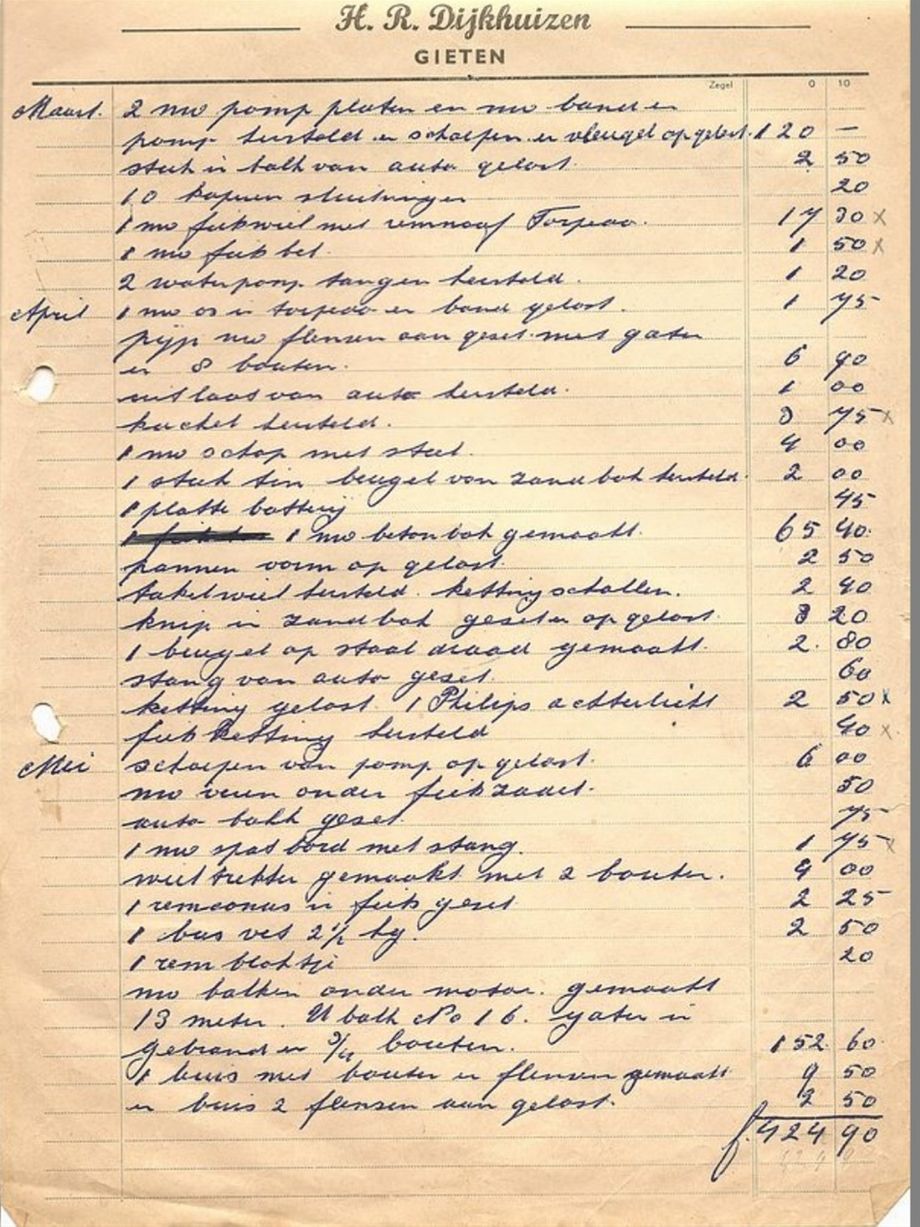 H. R. Dijkhuizen
GIETEN
Zegel 0 10
Maart. 2 nw pomp platen en nw band en
pomp hersteld en schoepen en vleugel op gelast. 120 —
stuk in balk van auto gelast. 2 50
10 koperen sluitringen 20
1 nw fiekwiel met remnaaf Torpedo. 17 30 x
1 nw fiek bel. 1 50 x
2 waterpomp tangen hersteld. 1 20
April 1 nw as in torpedo en band gelast. 1 75
pijp nw flensen aan gezet met gaten
en 8 bouten. 6 90
uitlaat van auto hersteld. 1 00
kachel hersteld. 75 x
1 nw schop met steel. 4 00
1 stuk tin beugel van zandbak hersteld. 2 00
1 platte batterij 45
1 nw betonbak gemaakt. 65 40.
pannen vorm op gelast. 2 50
takelwiel hersteld. ketting schallen. 2 40
knip in zandbak gezet en op gelast. 20
1 beugel op staal draad gemaakt. 2. 80
stang van auto gezet. 60
ketting gelast. 1 Philips achterlicht 2 50 x
fiek ketting hersteld 40 x.
Mei schoepen van pomp op gelast. 6 00
nw veren onder fiekzadel. 50
auto balk gezet 75
1 nw spatbord met stang. 1 75 x
wieltrekker gemaakt met 2 bouten. 4 00
1 remconus in fiek gezet 2 25
1 bus vet 2½ kg. 2 50
1 rem blokje 20
nw balken onder motor. gemaakt
13 meter. U balk No 16. gaten in
gebrand en 3/4 bouten. 152 60.
1 buis met bouten en flensen gemaakt 9 50
en buis 2 flensen aan gelast. 2 50
f. 424 90